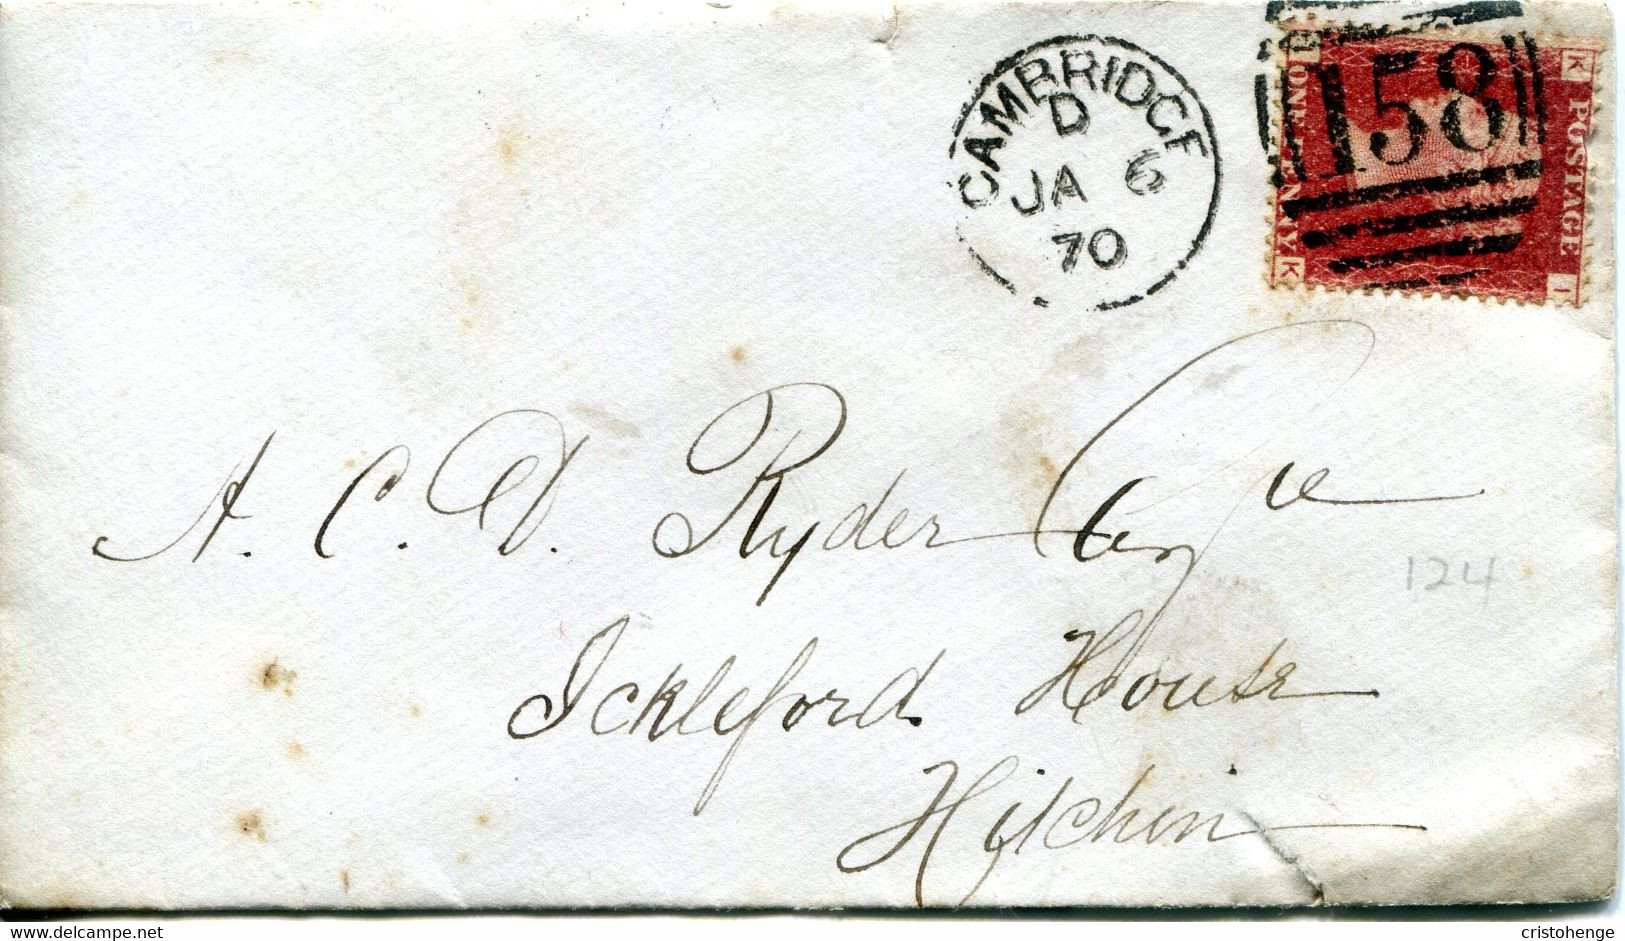 CAMBRIDGE
D
JA 6
70
158
K POSTAGE I
I ONE PENNY K
A. C. D. Ryder Esqre
Ickleford House
Hitchin
124
delcampe.net
cristohenge